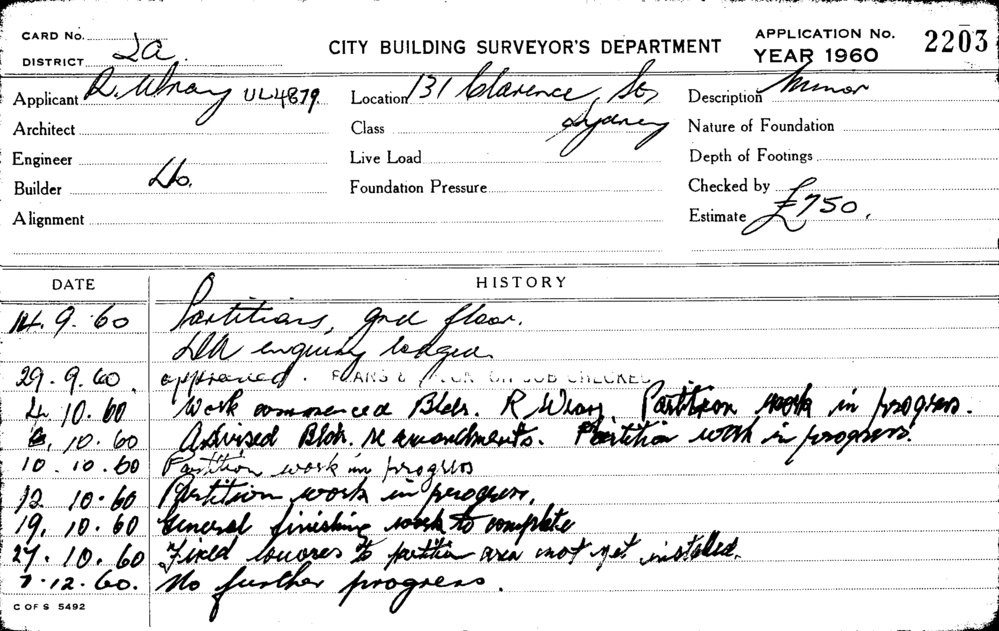 CARD No.
DISTRICT 2A.
CITY BUILDING SURVEYOR'S DEPARTMENT
APPLICATION No. 2203
YEAR 1960
Applicant R. Wray UL4879
Location 131 Clarence St,
Sydney
Description Minor
Architect
Class
Nature of Foundation
Engineer
Live Load
Depth of Footings
Builder Do.
Foundation Pressure
Checked by
Alignment
Estimate £750.
DATE HISTORY
14. 9. 60 Partitions, gnd floor.
DA enquiry lodged
29. 9. 60. approved. PLANS & JOB CHECKED
4. 10. 60 Work commenced Bldr. R Wray. Partition work in progress.
6. 10. 60 Advised Bldr. re amendments. Partition work in progress.
10. 10. 60 Partition work in progress
12. 10. 60 Partition work in progress.
19. 10. 60 General finishing work to complete
27. 10. 60 Fixed louvres to partition area not yet installed.
7. 12. 60. No further progress.
C OF S 5492